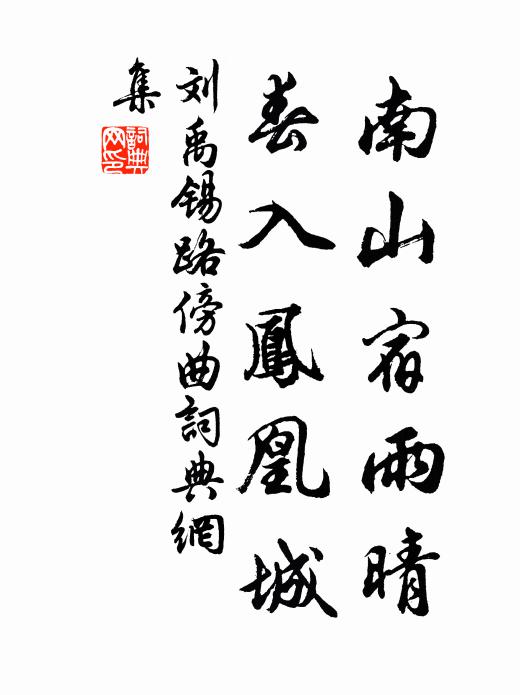 南山宿雨晴
春入鳳凰城
刘禹锡路傍曲詞典網
集
詞典網印